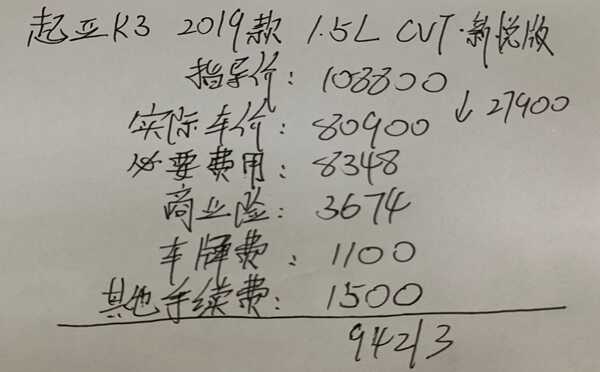 起亚K3 2019款 1.5L CVT·新悦版
指导价: 108800
实际车价: 80900 ↓27900
必要费用: 8348
商业险: 3674
车牌费: 1100
其他手续费: 1500
94213